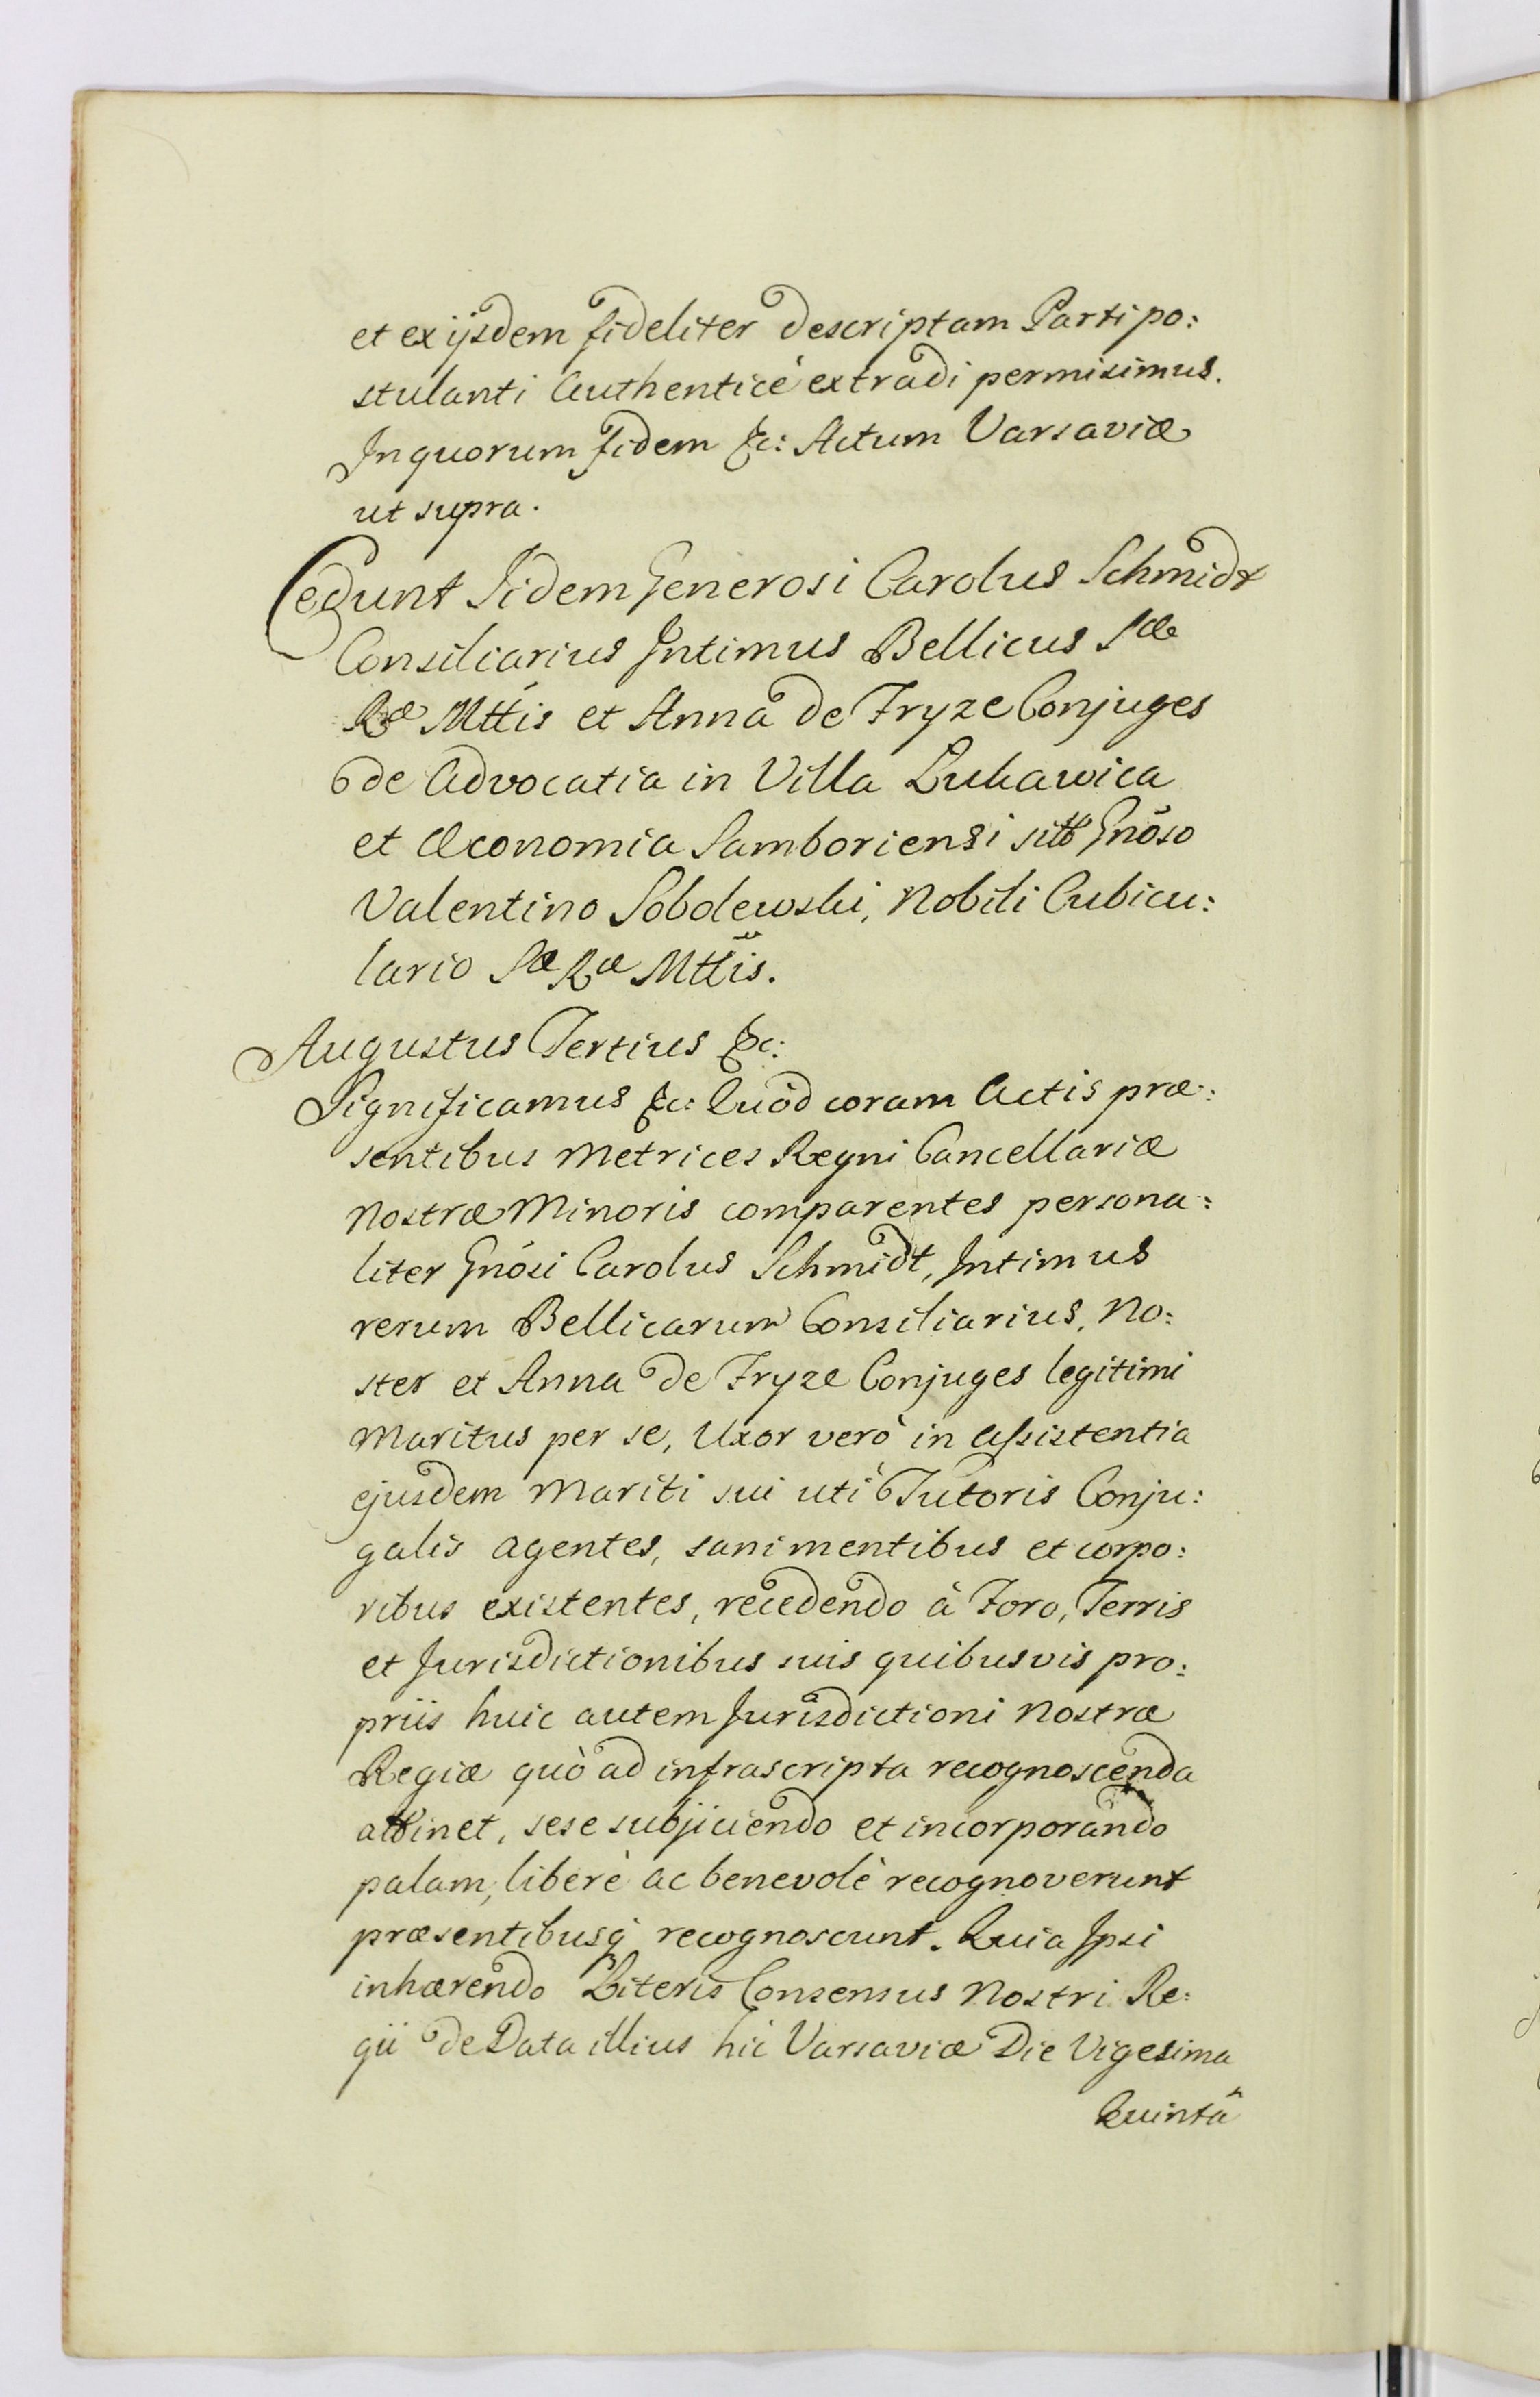 et ex ijsdem fideliter descriptam Parti po:
stulanti Authenticè extradi permisimus.
In quorum fidem &c: Actum Varsaviæ
ut supra.
Cedunt Iidem Generosi Carolus Schmidt
Consiliarius Intimus Bellicus Sæ
Ræ Mttis et Anna de Fryze Conjuges
de Advocatia in Villa Lukawica
et Œconomia Samboriensi sitt Gnōso
Valentino Sobolewski, Nobili Cubicu:
lario Sæ Ræ Mttis.
Augustus Tertius &c:
Significamus &c: Quod coram Actis præ:
sentibus Metrices Regni Cancellariæ
Nostræ Minoris comparentes persona:
liter Gnōsi Carolus Schmidt, Intimus
rerum Bellicarum Consiliarius, No:
ster et Anna de Fryze Conjuges legitimi
Maritus per se, Uxor verò in Assistentia
ejusdem Mariti sui uti Tutoris Conju:
galis agentes, sani mentibus et corpo:
ribus existentes, recedendo à Foro, Terris
et Jurisdictionibus suis quibusvis pro:
priis huic autem Jurisdictioni Nostræ
Regiæ quò ad infrascripta recognoscenda
attinet, sese subjiciendo et incorporando
palam, liberè ac benevolè recognoverunt
præsentibusq́ recognoscunt. Quia Ipsi
inhærendo Literis Consensus Nostri Re:
gii de Data illius hic Varsaviæ Die Vigesima
Quintâ